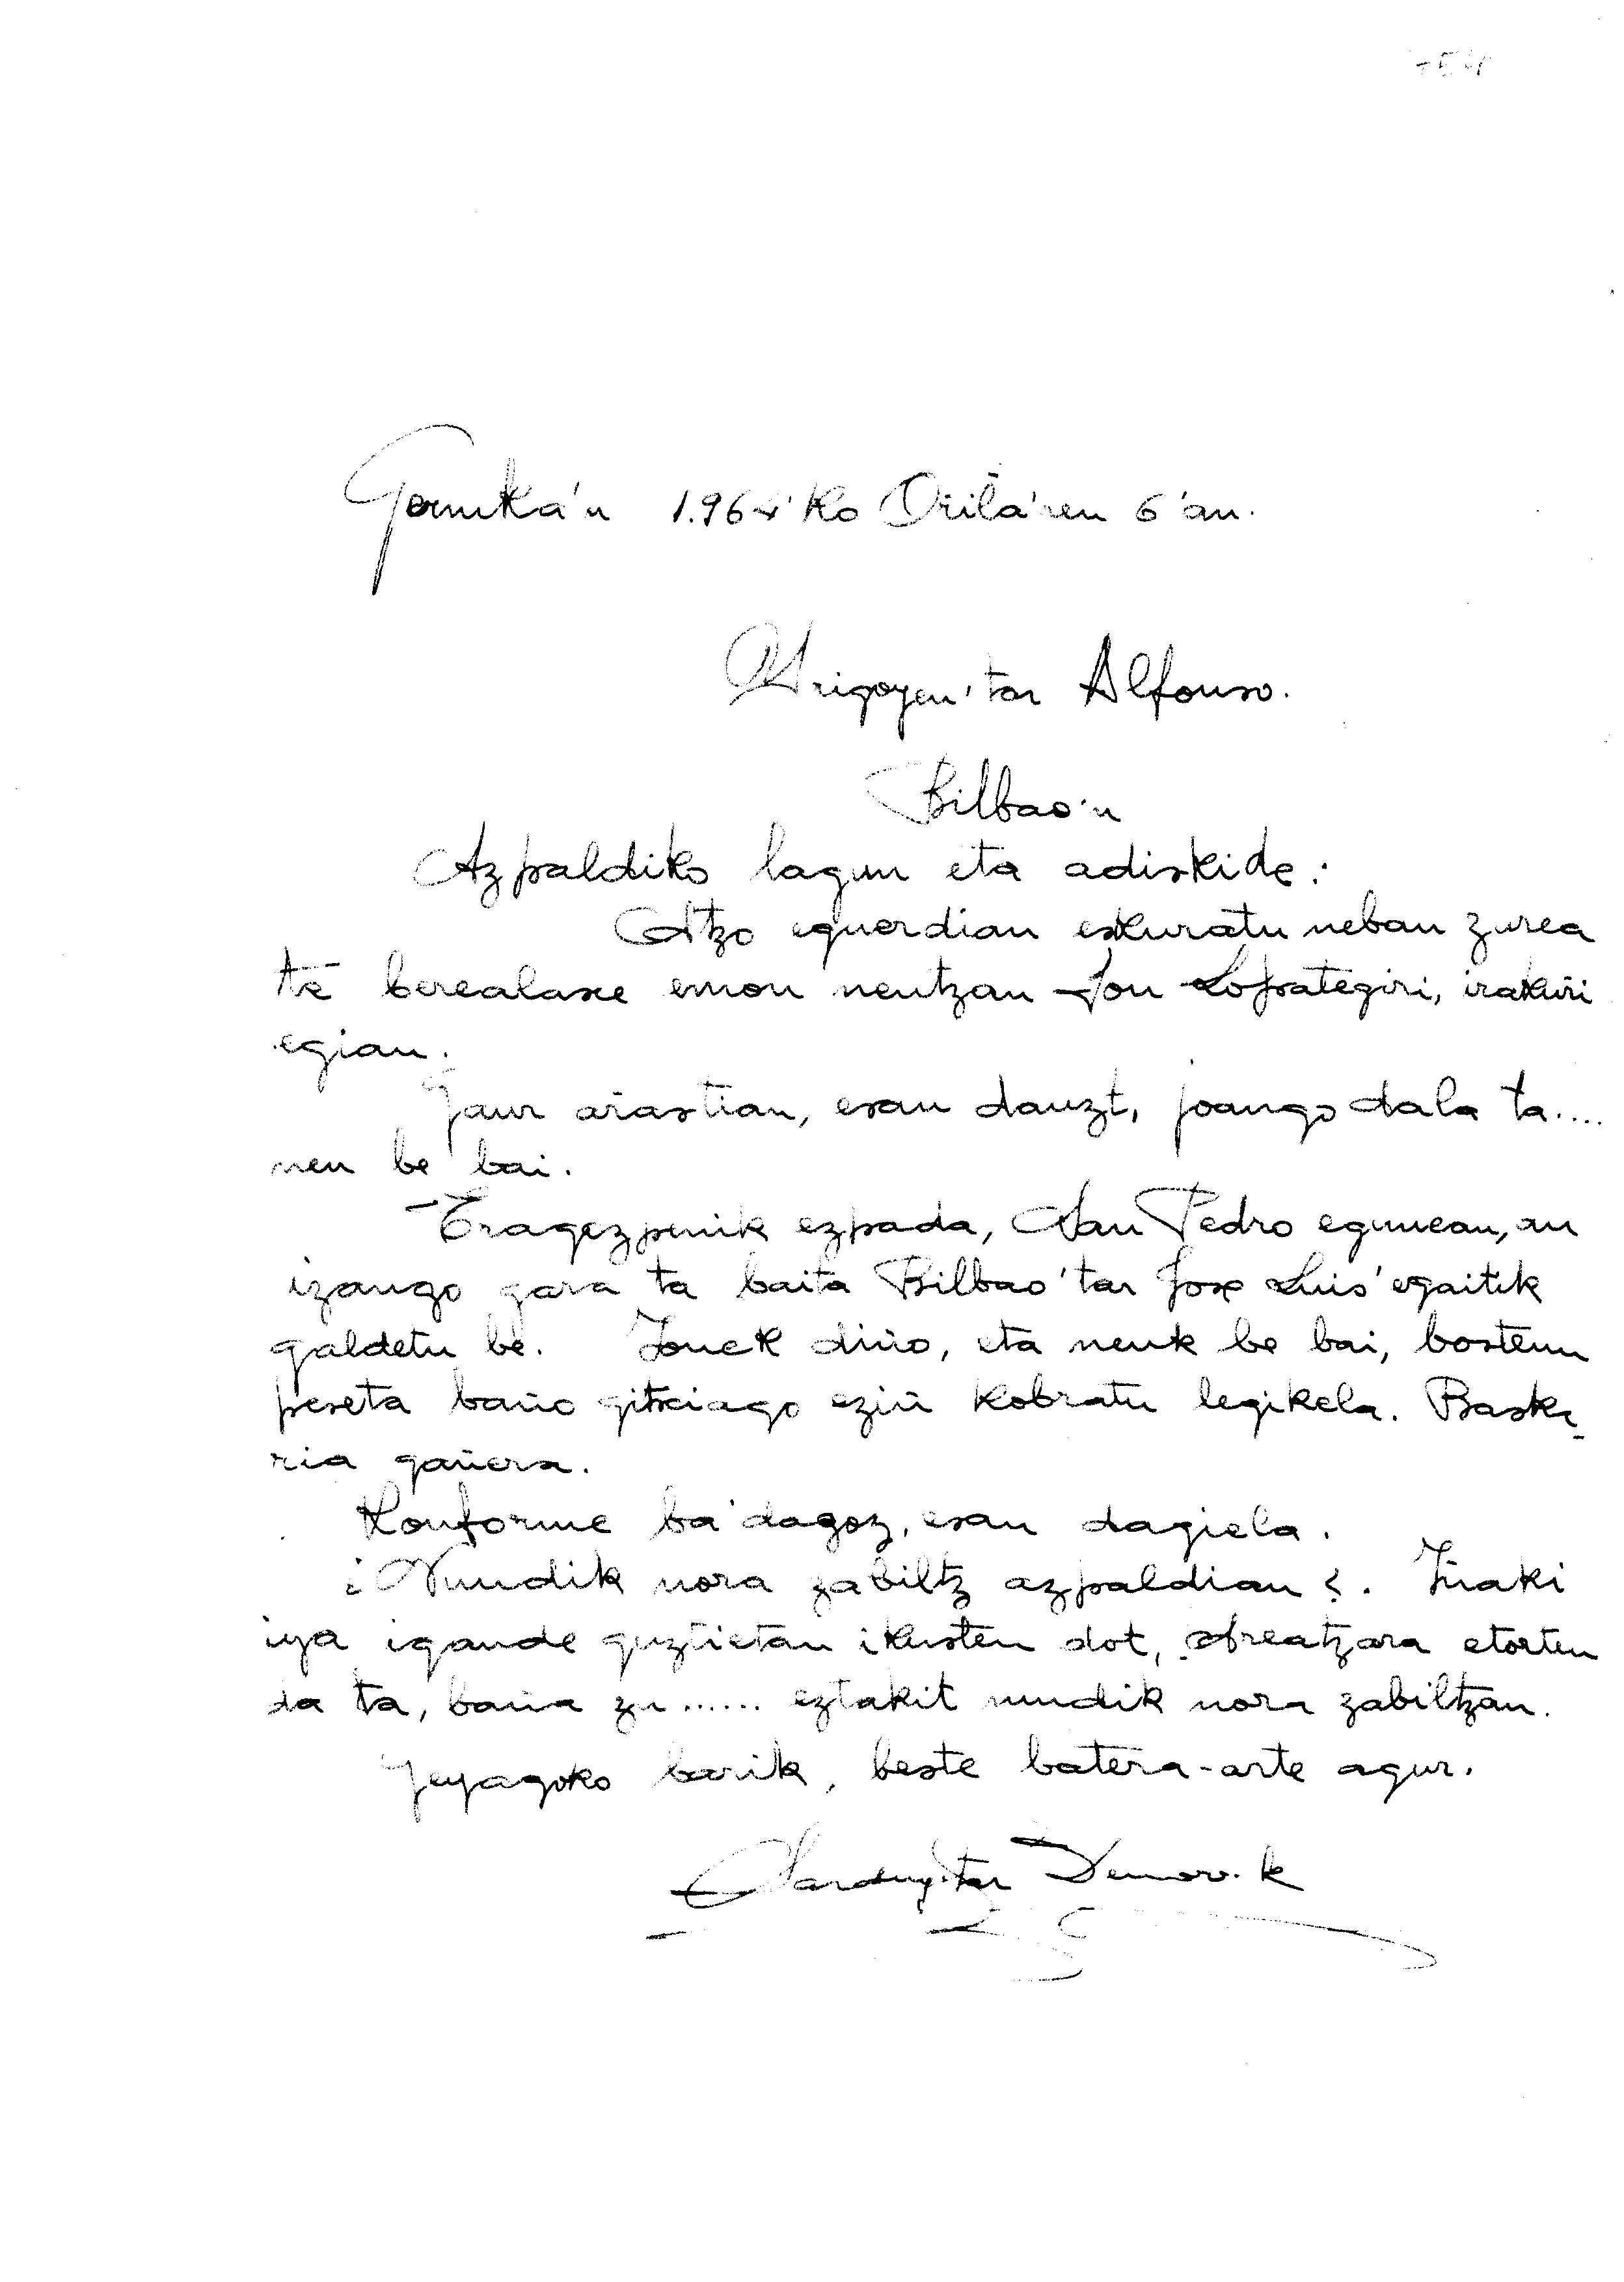 Gernika'n 1.964'ko Oŕila'ren 6'an.
Irigoyen'tar Alfonso.
Bilbao'n
Azpaldiko lagun eta adiskide:
Atzo eguerdian eskuratu neban zurea
ta berealaxe emon neutzan Jon Lopategiri, irakuŕi
egian.
Gaur aŕastian, esan dauzt, joango dala ta....
neu be bai.
Eragozpenik ezpada, San Pedro egunean, an
izango gara ta baita Bilbao'tar Jose Luis'egaitik
galdetu be. Jonek diño, eta neuk be bai, bosteun
peseta baño gitxiago eziñ kobratu legikela. Baske-
ria gañera.
Konforme ba'dagoz, esan dagiela.
¿Nundik nora zabiltz azpaldian?. Iñaki
iya igande guztietan ikusten dot, Areatzara etorten
da ta, baña zu...... eztakit nundik nora zabiltzan.
Geyagoko barik, beste batera-arte agur.